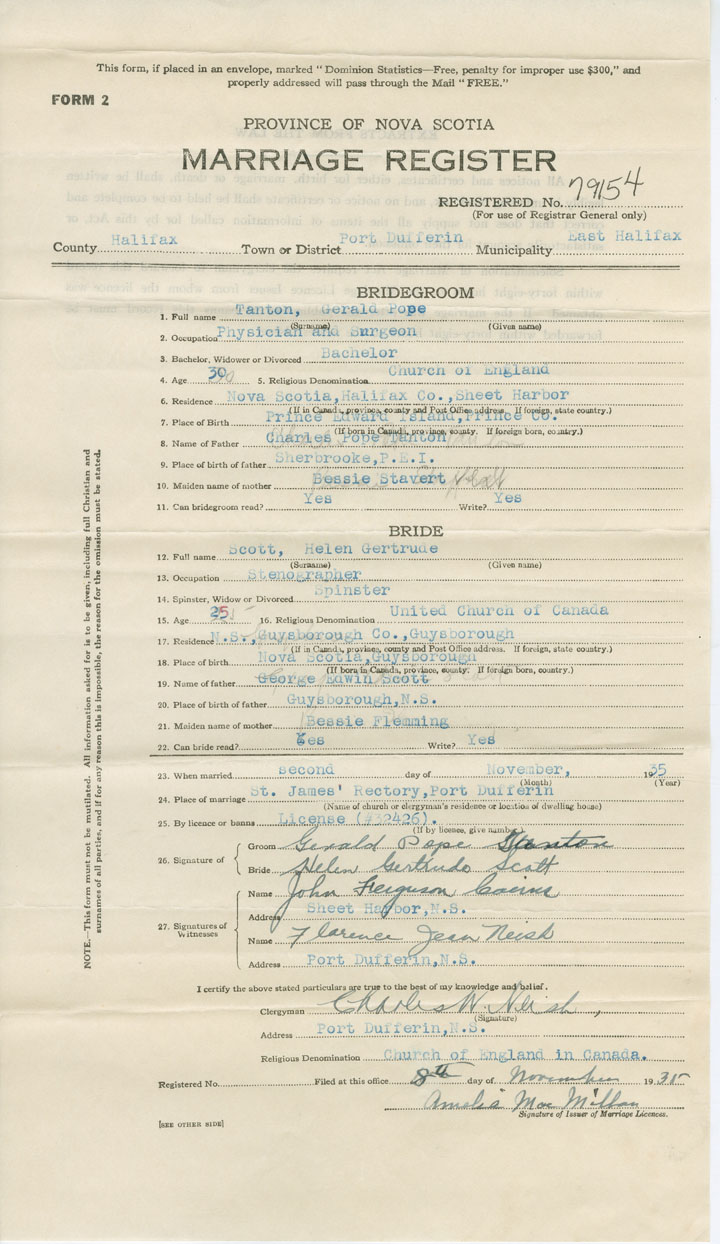 This form, if placed in an envelope, marked "Dominion Statistics—Free, penalty for improper use $300," and
properly addressed will pass through the Mail "FREE."
FORM 2
PROVINCE OF NOVA SCOTIA
MARRIAGE REGISTER
REGISTERED No. 79154
(For use of Registrar General only)
County Halifax Town or District Port Dufferin Municipality East Halifax
BRIDEGROOM
1. Full name Tanton, Gerald Pope
(Surname) (Given name)
2. Occupation Physician and Surgeon
3. Bachelor, Widower or Divorced Bachelor
4. Age 30 5. Religious Denomination Church of England
6. Residence Nova Scotia, Halifax Co., Sheet Harbor
(If in Canada, province, county and Post Office address. If foreign, state country.)
7. Place of Birth Prince Edward Island, Prince Co.
(If born in Canada, province, county. If foreign born, country.)
8. Name of Father Charles Pope Tanton
9. Place of birth of father Sherbrooke, P.E.I.
10. Maiden name of mother Bessie Stavert
11. Can bridegroom read? Yes Write? Yes
BRIDE
12. Full name Scott, Helen Gertrude
(Surname) (Given name)
13. Occupation Stenographer
14. Spinster, Widow or Divorced Spinster
15. Age 25 16. Religious Denomination United Church of Canada
17. Residence N.S., Guysborough Co., Guysborough
(If in Canada, province, county and Post Office address. If foreign, state country.)
18. Place of birth Nova Scotia, Guysborough
(If born in Canada, province, county. If foreign born, country.)
19. Name of father George Edwin Scott
20. Place of birth of father Guysborough, N.S.
21. Maiden name of mother Bessie Flemming
22. Can bride read? Yes Write? Yes
23. When married second day of November, 1935
(Month) (Year)
24. Place of marriage St. James' Rectory, Port Dufferin
(Name of church or clergyman's residence or location of dwelling house)
25. By licence or banns License (#32426).
(If by licence, give number)
26. Signature of Groom Gerald Pope Tanton
Bride Helen Gertrude Scott
27. Signatures of Witnesses Name John Ferguson Cairns
Address Sheet Harbor, N.S.
Name Florence Jean Neish
Address Port Dufferin, N.S.
I certify the above stated particulars are true to the best of my knowledge and belief.
Clergyman Charles W. Neish,
(Signature)
Address Port Dufferin, N.S.
Religious Denomination Church of England in Canada.
Registered No. Filed at this office 8th day of November 1935
Amelia MacMillan
Signature of Issuer of Marriage Licences.
[SEE OTHER SIDE]
NOTE.—This form must not be mutilated. All information asked for is to be given, including full Christian and
surnames of all parties, and if for any reason this is impossible, the reason for the omission must be stated.